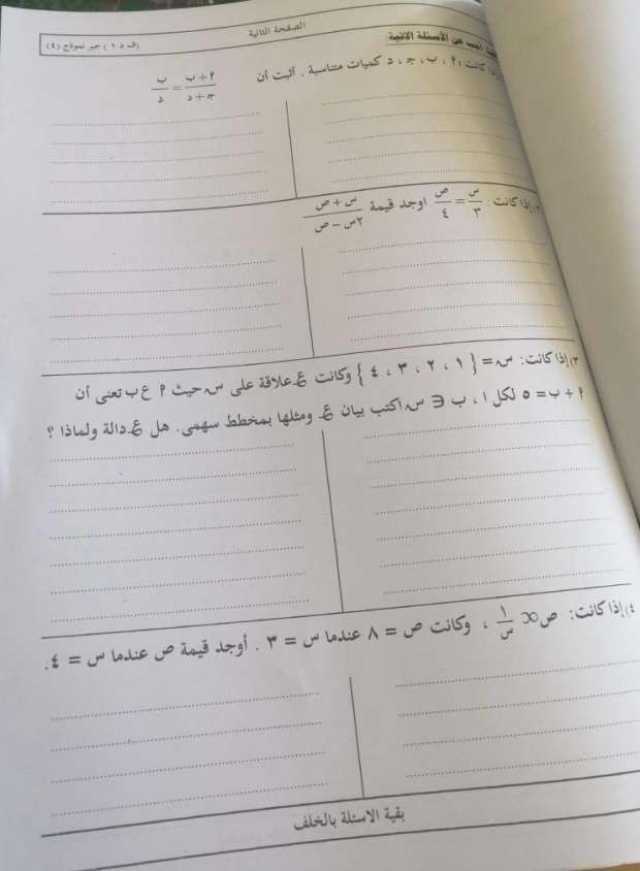 الصفحة الثانية
(ف د ١) جبر نموذج (٤)
أجب عن الأسئلة الآتية
كانت ٢ ، ب ، جـ ، د كميات متناسبة . أثبت أن (٢ + ب)/(جـ + د) = ب/د
إذا كانت س/٣ = ص/٤ اوجد قيمة (س + ص)/(٢س - ص)
٣) إذا كانت : س = {١ ، ٢ ، ٣ ، ٤} وكانت ع علاقة على س حيث ٢ ع ب تعنى أن
٢ + ب = ٥ لكل ١ ، ب ∈ س اكتب بيان ع ومثلها بمخطط سهمى. هل ع دالة ولماذا ؟
٤) إذا كانت : ص ∝ ١/س ، وكانت ص = ٨ عندما س = ٣ . أوجد قيمة ص عندما س = ٤.
بقية الاسئلة بالخلف